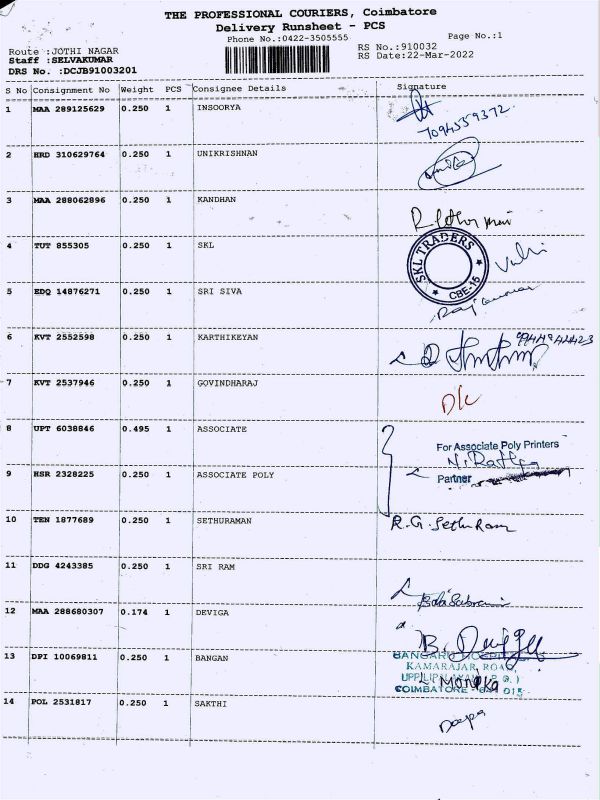 THE PROFESSIONAL COURIERS, Coimbatore
Delivery Runsheet - PCS
Phone No.:0422-3505555
Page No.:1
Route :JOTHI NAGAR
RS No.:910032
Staff :SELVAKUMAR
RS Date:22-Mar-2022
DRS No. :DCJB91003201
S No Consignment No Weight PCS Consignee Details Signature
1 MAA 289125629 0.250 1 INSOORYA
7094559372
2 HRD 310629764 0.250 1 UNIKRISHNAN
3 MAA 288062896 0.250 1 KANDHAN
4 TUT 855305 0.250 1 SKL
SKL TRADERS
CBE-15
5 EDQ 14876271 0.250 1 SRI SIVA
6 KVT 2552598 0.250 1 KARTHIKEYAN
7 KVT 2537946 0.250 1 GOVINDHARAJ
D/c
8 UPT 6038846 0.495 1 ASSOCIATE
For Associate Poly Printers
9 HSR 2328225 0.250 1 ASSOCIATE POLY
Partner
10 TEN 1877689 0.250 1 SETHURAMAN R.G. Sethu Ram
11 DDG 4243385 0.250 1 SRI RAM
12 MAA 288680307 0.174 1 DEVIGA
13 DPI 10069811 0.250 1 BANGAN
KAMARAJAR ROAD,
COIMBATORE
14 POL 2531817 0.250 1 SAKTHI
Deepa